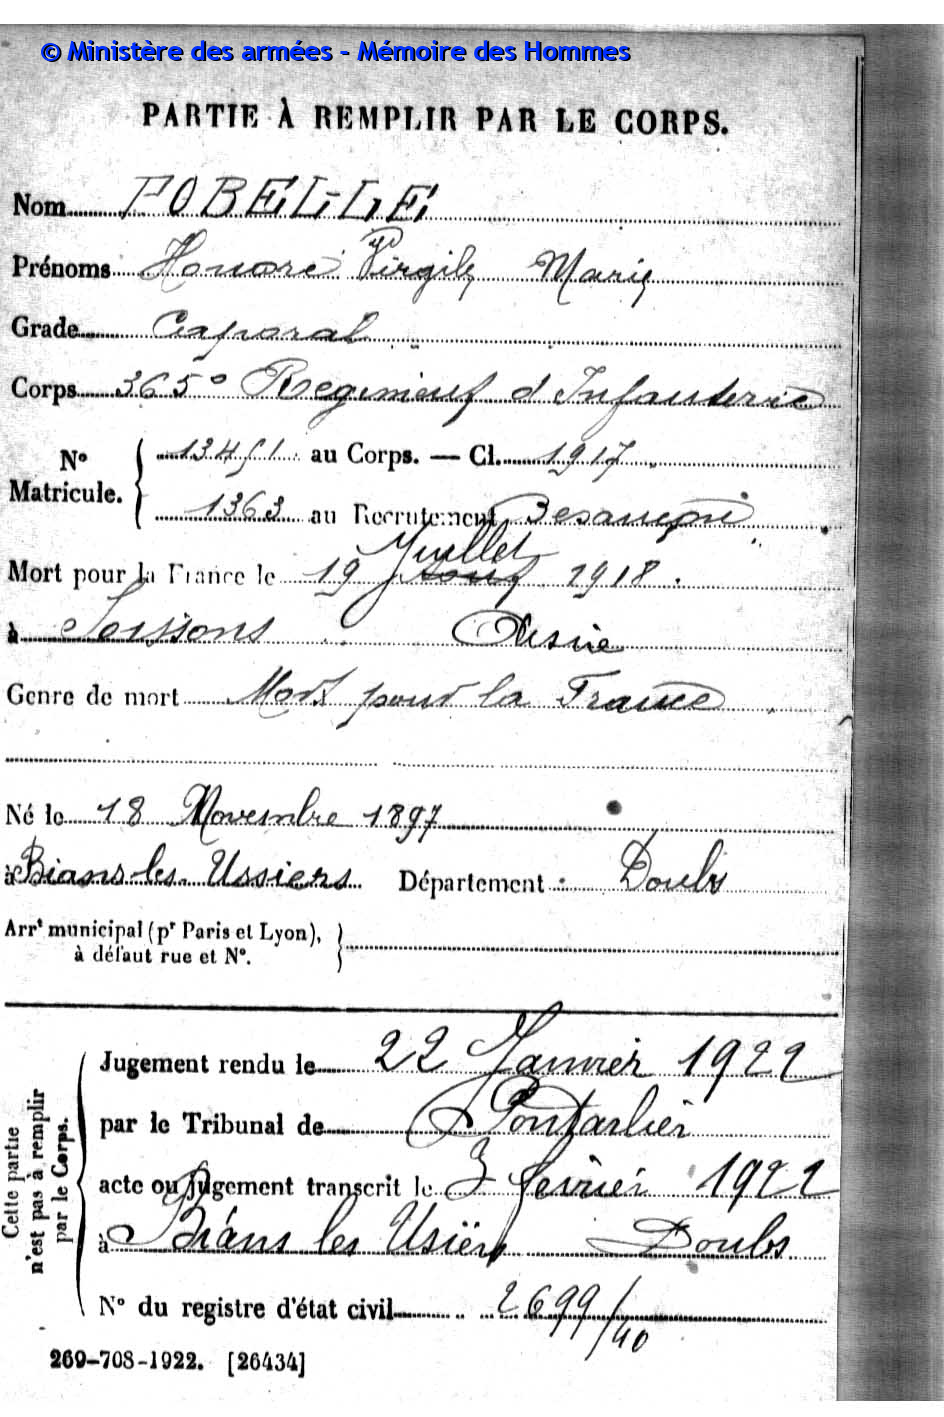 © Ministère des armées - Mémoire des Hommes
PARTIE À REMPLIR PAR LE CORPS.
Nom POBELLE
Prénoms Honoré Virgile Marie
Grade Caporal
Corps 365e Régiment d'Infanterie
No Matricule. 13451 au Corps. — Cl. 1917
1363 au Recrutement Besançon
Juillet
Mort pour la France le 19 1918.
à Soissons Aisne
Genre de mort Mort pour la France
Né le 18 Novembre 1897
à Bians-les-Ussiers Département : Doubs
Arrt municipal (pr Paris et Lyon),
à défaut rue et No.
Cette partie
n'est pas à remplir
par le Corps.
Jugement rendu le 22 Janvier 1922
par le Tribunal de Pontarlier
acte ou jugement transcrit le 3 février 1922
à Bians les Usiers Doubs
No du registre d'état civil 2699/40
269-708-1922. [26434]